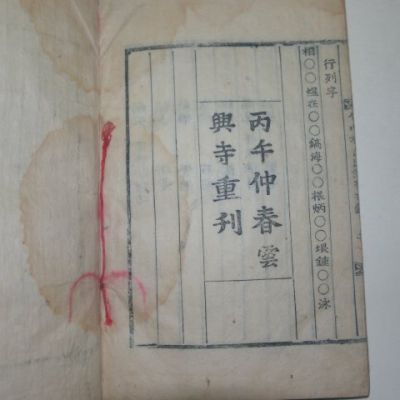 行列字
相○○煜在○○鎬海○○根炳○○垠鍾○○泳
丙午仲春雲
興寺重刊